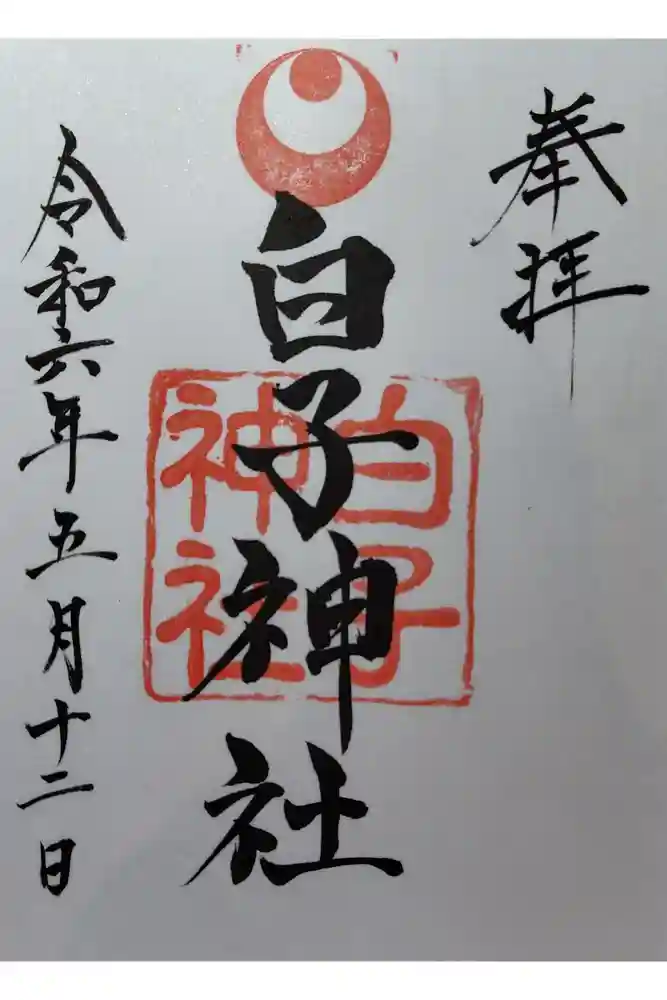 奉拝
白子神社
白子
神社
令和六年五月十二日